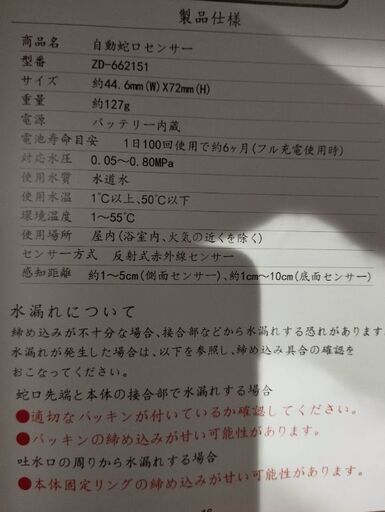 製品仕様
商品名 自動蛇口センサー
型番 ZD-662151
サイズ 約44.6mm(W)X72mm(H)
重量 約127g
電源 バッテリー内蔵
電池寿命目安 1日100回使用で約6ヶ月(フル充電使用時)
対応水圧 0.05～0.80MPa
使用水質 水道水
使用水温 1℃以上、50℃以下
環境温度 1～55℃
使用場所 屋内(浴室内、火気の近くを除く)
センサー方式 反射式赤外線センサー
感知距離 約1～5cm(側面センサー)、約1cm～10cm(底面センサー)
水漏れについて
締め込みが不十分な場合、接合部などから水漏れする恐れがあります
水漏れが発生した場合は、以下を参照し、締め込み具合の確認を
おこなってください。
蛇口先端と本体の接合部で水漏れする場合
●適切なパッキンが付いているか確認してください。
●パッキンの締め込みが甘い可能性があります。
吐水口の周りから水漏れする場合
●本体固定リングの締め込みが甘い可能性があります。